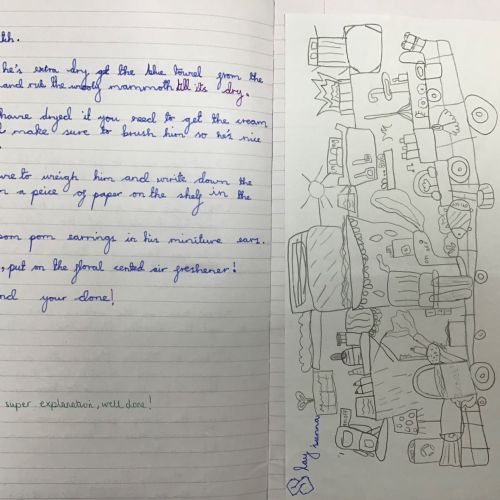 th.
he's extra dry get the blue towel from the
and rub the wooly mammoth till its dry.
have dryed it you need to get the cream
make sure to brush him so he's nice
ure to weigh him and write down the
n a peice of paper on the shelf in the
pom pom earrings in his miniture ears.
, put on the floral cented air freshener!
nd your done!
super explanation, well done!